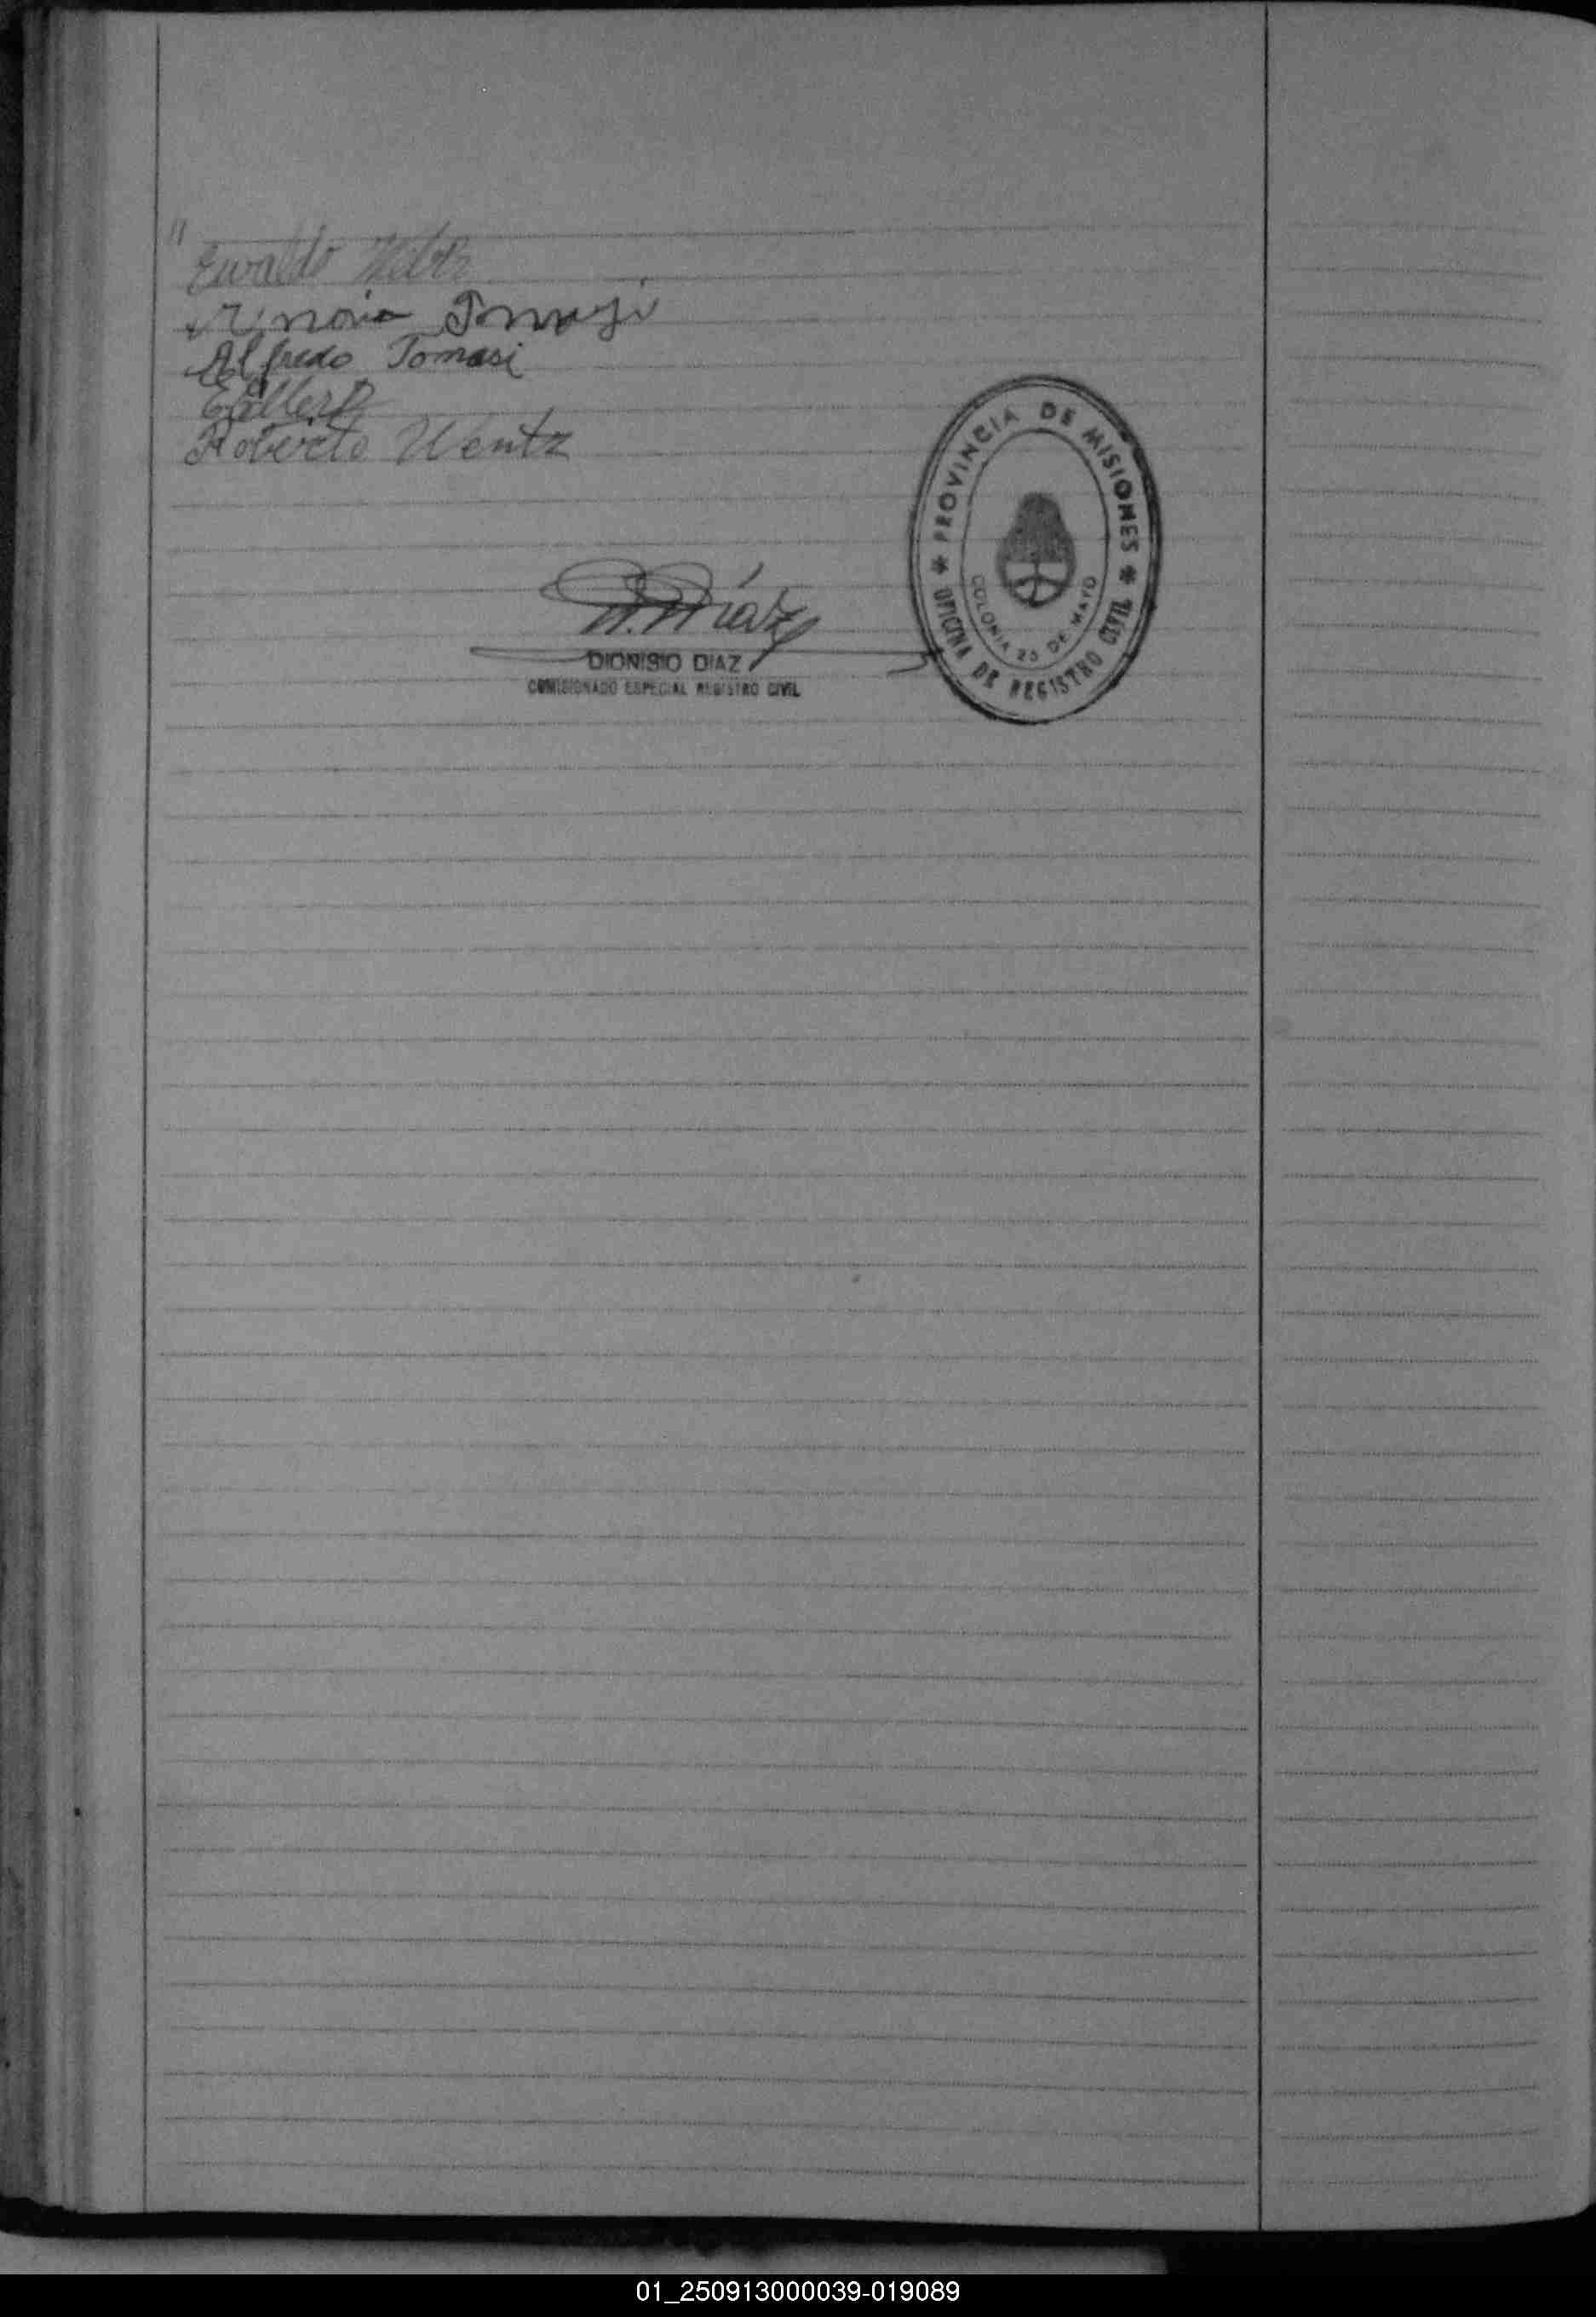 Ewaldo
Tomasi
Alfredo Tomasi
Roberto Wentz
D. Díaz
DIONISIO DIAZ
COMISIONADO ESPECIAL REGISTRO CIVIL
* PROVINCIA DE MISIONES *
OFICINA DE REGISTRO CIVIL
COLONIA 25 DE MAYO
01_250913000039-019089